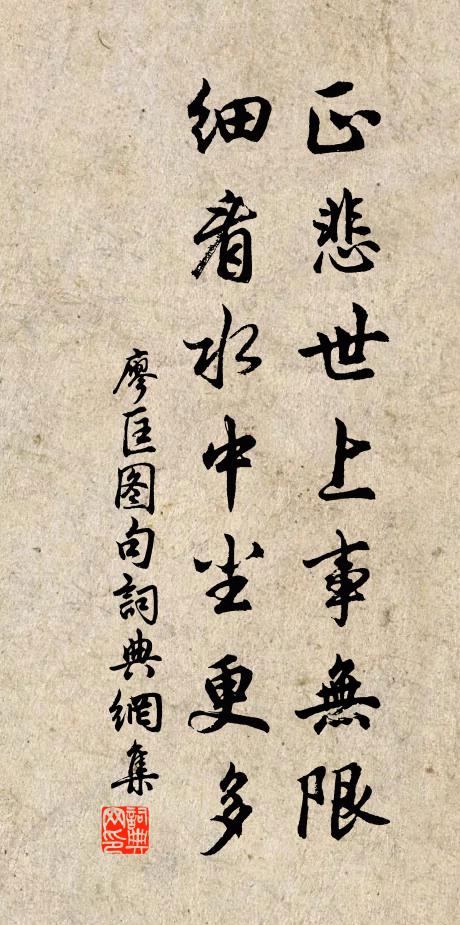 正悲世上事無限
細看水中尘更多
廖匡图句詞典網集
詞典网印